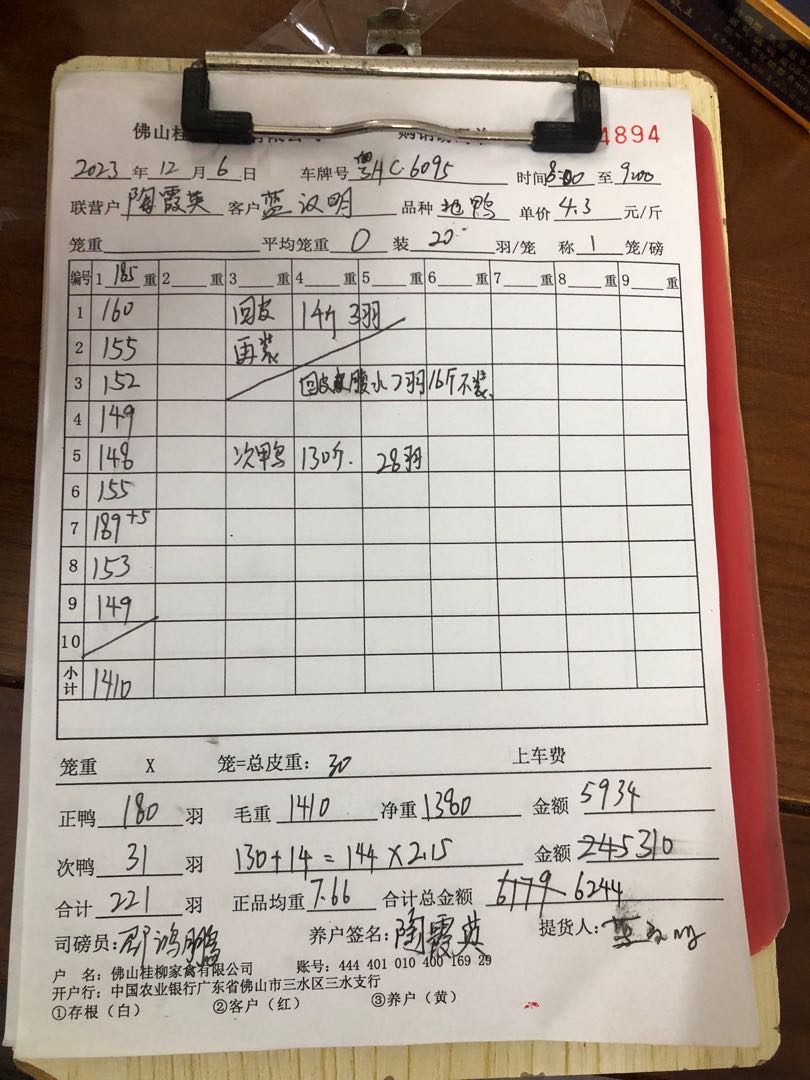 佛山桂
4894
2023年12月6日 车牌号 粤HC·6095 时间8:00至9:00
联营户 陶霞英 客户 蓝汉明 品种 地鸭 单价 4.3 元/斤
笼重 平均笼重 0 装 20 羽/笼 称 1 笼/磅
编号 1 185 重 2 重 3 重 4 重 5 重 6 重 7 重 8 重 9 重
1 160 回皮 14斤 3羽
2 155 再装
3 152 回皮 腹水2羽16斤不装
4 149
5 148 次鸭 130斤. 28羽
6 155
7 189+5
8 153
9 149
10
小计 1410
笼重 X 笼=总皮重: 30 上车费
正鸭 180 羽 毛重 1410 净重 1380 金额 5934
次鸭 31 羽 130+14=144×2.15 金额 245 310
合计 221 羽 正品均重 7.66 合计总金额 6179 6244
司磅员: 邓鸿鹏 养户签名: 陶霞英 提货人:
户 名: 佛山桂柳家禽有限公司 账号: 444 401 010 400 169 29
开户行: 中国农业银行广东省佛山市三水区三水支行
①存根（白） ②客户（红） ③养户（黄）